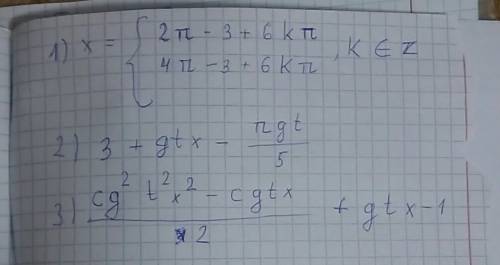 1) x = { 2π - 3 + 6kπ
4π - 3 + 6kπ , k ∈ Z
2) 3 + gtx - πgt/5
3) (cg² t²x² - cgtx)/2 + gtx - 1